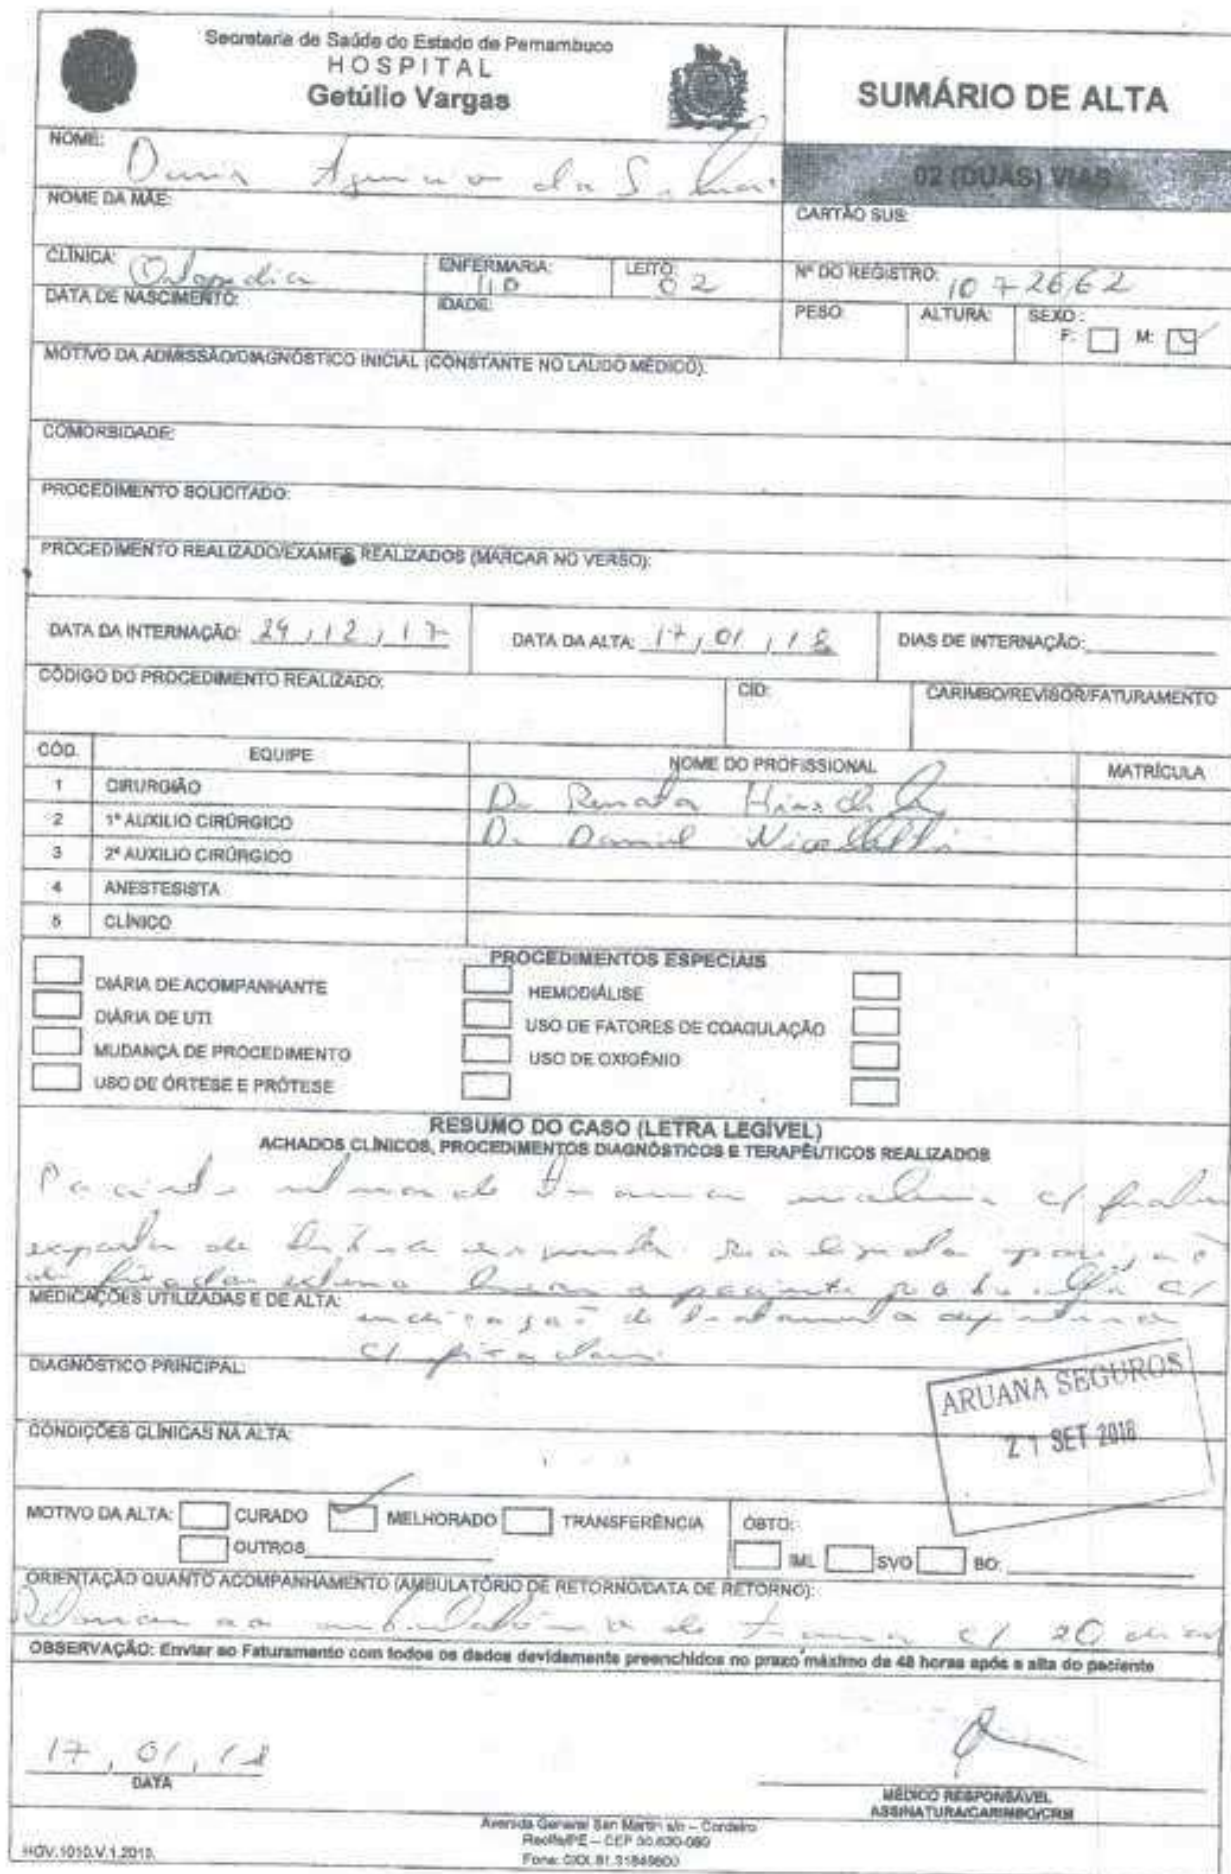 Secretaria de Saúde do Estado de Pernambuco
HOSPITAL
Getúlio Vargas
SUMÁRIO DE ALTA
02 (DUAS) VIAS
NOME: da
NOME DA MÃE:
CARTÃO SUS:
CLÍNICA: Ortopedia
ENFERMARIA: 110
LEITO: 02
Nº DO REGISTRO: 1072662
DATA DE NASCIMENTO:
IDADE:
PESO:
ALTURA:
SEXO:
F: M:
MOTIVO DA ADMISSÃO/DIAGNÓSTICO INICIAL (CONSTANTE NO LAUDO MÉDICO):
COMORBIDADE:
PROCEDIMENTO SOLICITADO:
PROCEDIMENTO REALIZADO/EXAMES REALIZADOS (MARCAR NO VERSO):
DATA DA INTERNAÇÃO: 24/12/17
DATA DA ALTA: 17/01/18
DIAS DE INTERNAÇÃO:
CÓDIGO DO PROCEDIMENTO REALIZADO:
CID:
CARIMBO/REVISOR/FATURAMENTO
CÓD. EQUIPE NOME DO PROFISSIONAL MATRÍCULA
1 CIRURGIÃO Dr Renato
2 1º AUXILIO CIRÚRGICO Dr Daniel
3 2º AUXILIO CIRÚRGICO
4 ANESTESISTA
5 CLÍNICO
PROCEDIMENTOS ESPECIAIS
DIÁRIA DE ACOMPANHANTE HEMODIÁLISE
DIÁRIA DE UTI USO DE FATORES DE COAGULAÇÃO
MUDANÇA DE PROCEDIMENTO USO DE OXIGÊNIO
USO DE ÓRTESE E PRÓTESE
RESUMO DO CASO (LETRA LEGÍVEL)
ACHADOS CLÍNICOS, PROCEDIMENTOS DIAGNÓSTICOS E TERAPÊUTICOS REALIZADOS
Paciente c/
exposta de realizada
de fixador externo paciente c/
MEDICAÇÕES UTILIZADAS E DE ALTA: indicação de tratamento
c/ fixador
DIAGNÓSTICO PRINCIPAL:
ARUANA SEGUROS
21 SET 2018
CONDIÇÕES CLÍNICAS NA ALTA:
MOTIVO DA ALTA: CURADO MELHORADO TRANSFERÊNCIA
OUTROS
ÓBTO:
IML SVO BO:
ORIENTAÇÃO QUANTO ACOMPANHAMENTO (AMBULATÓRIO DE RETORNO/DATA DE RETORNO):
Retornar ao ambulatório de trauma c/ 20 dias
OBSERVAÇÃO: Enviar ao Faturamento com todos os dados devidamente preenchidos no prazo máximo de 48 horas após a alta do paciente
17/01/18
DATA
MÉDICO RESPONSÁVEL
ASSINATURA/CARIMBO/CRM
Avenida General San Martin s/n – Cordeiro
Recife/PE – CEP 50.630-060
Fone: 0XX.81.31845600
HGV.1010.V.1.2010.